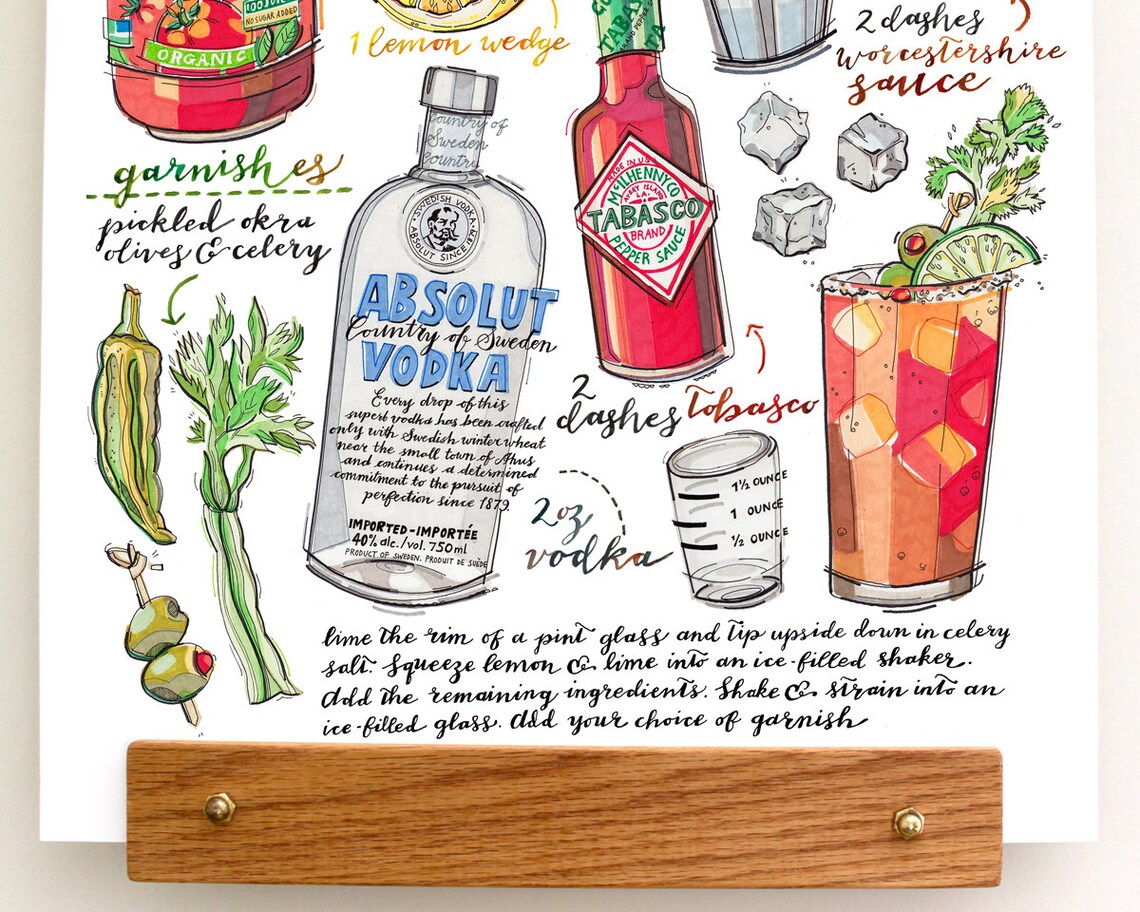 100% JUICE
NO SUGAR ADDED
ORGANIC
1 lemon wedge
TABASCO
2 dashes
worcestershire
sauce
garnishes
pickled okra
olives & celery
Country of
Sweden
Country
SWEDISH VODKA
ABSOLUT SINCE 1879
ABSOLUT
Country of Sweden
VODKA
Every drop of this
superb vodka has been crafted
only with Swedish winter wheat
near the small town of Åhus
and continues a determined
commitment to the pursuit of
perfection since 1879.
IMPORTED-IMPORTÉE
40% alc./vol. 750ml
PRODUCT OF SWEDEN. PRODUIT DE SUÈDE
MADE IN U.S.A.
McILHENNY CO
AVERY ISLAND
LA.
TABASCO
BRAND
PEPPER SAUCE
2
dashes Tobasco
2oz
vodka
1½ OUNCE
1 OUNCE
½ OUNCE
lime the rim of a pint glass and tip upside down in celery
salt. Squeeze lemon & lime into an ice-filled shaker.
Add the remaining ingredients. Shake & strain into an
ice-filled glass. Add your choice of garnish